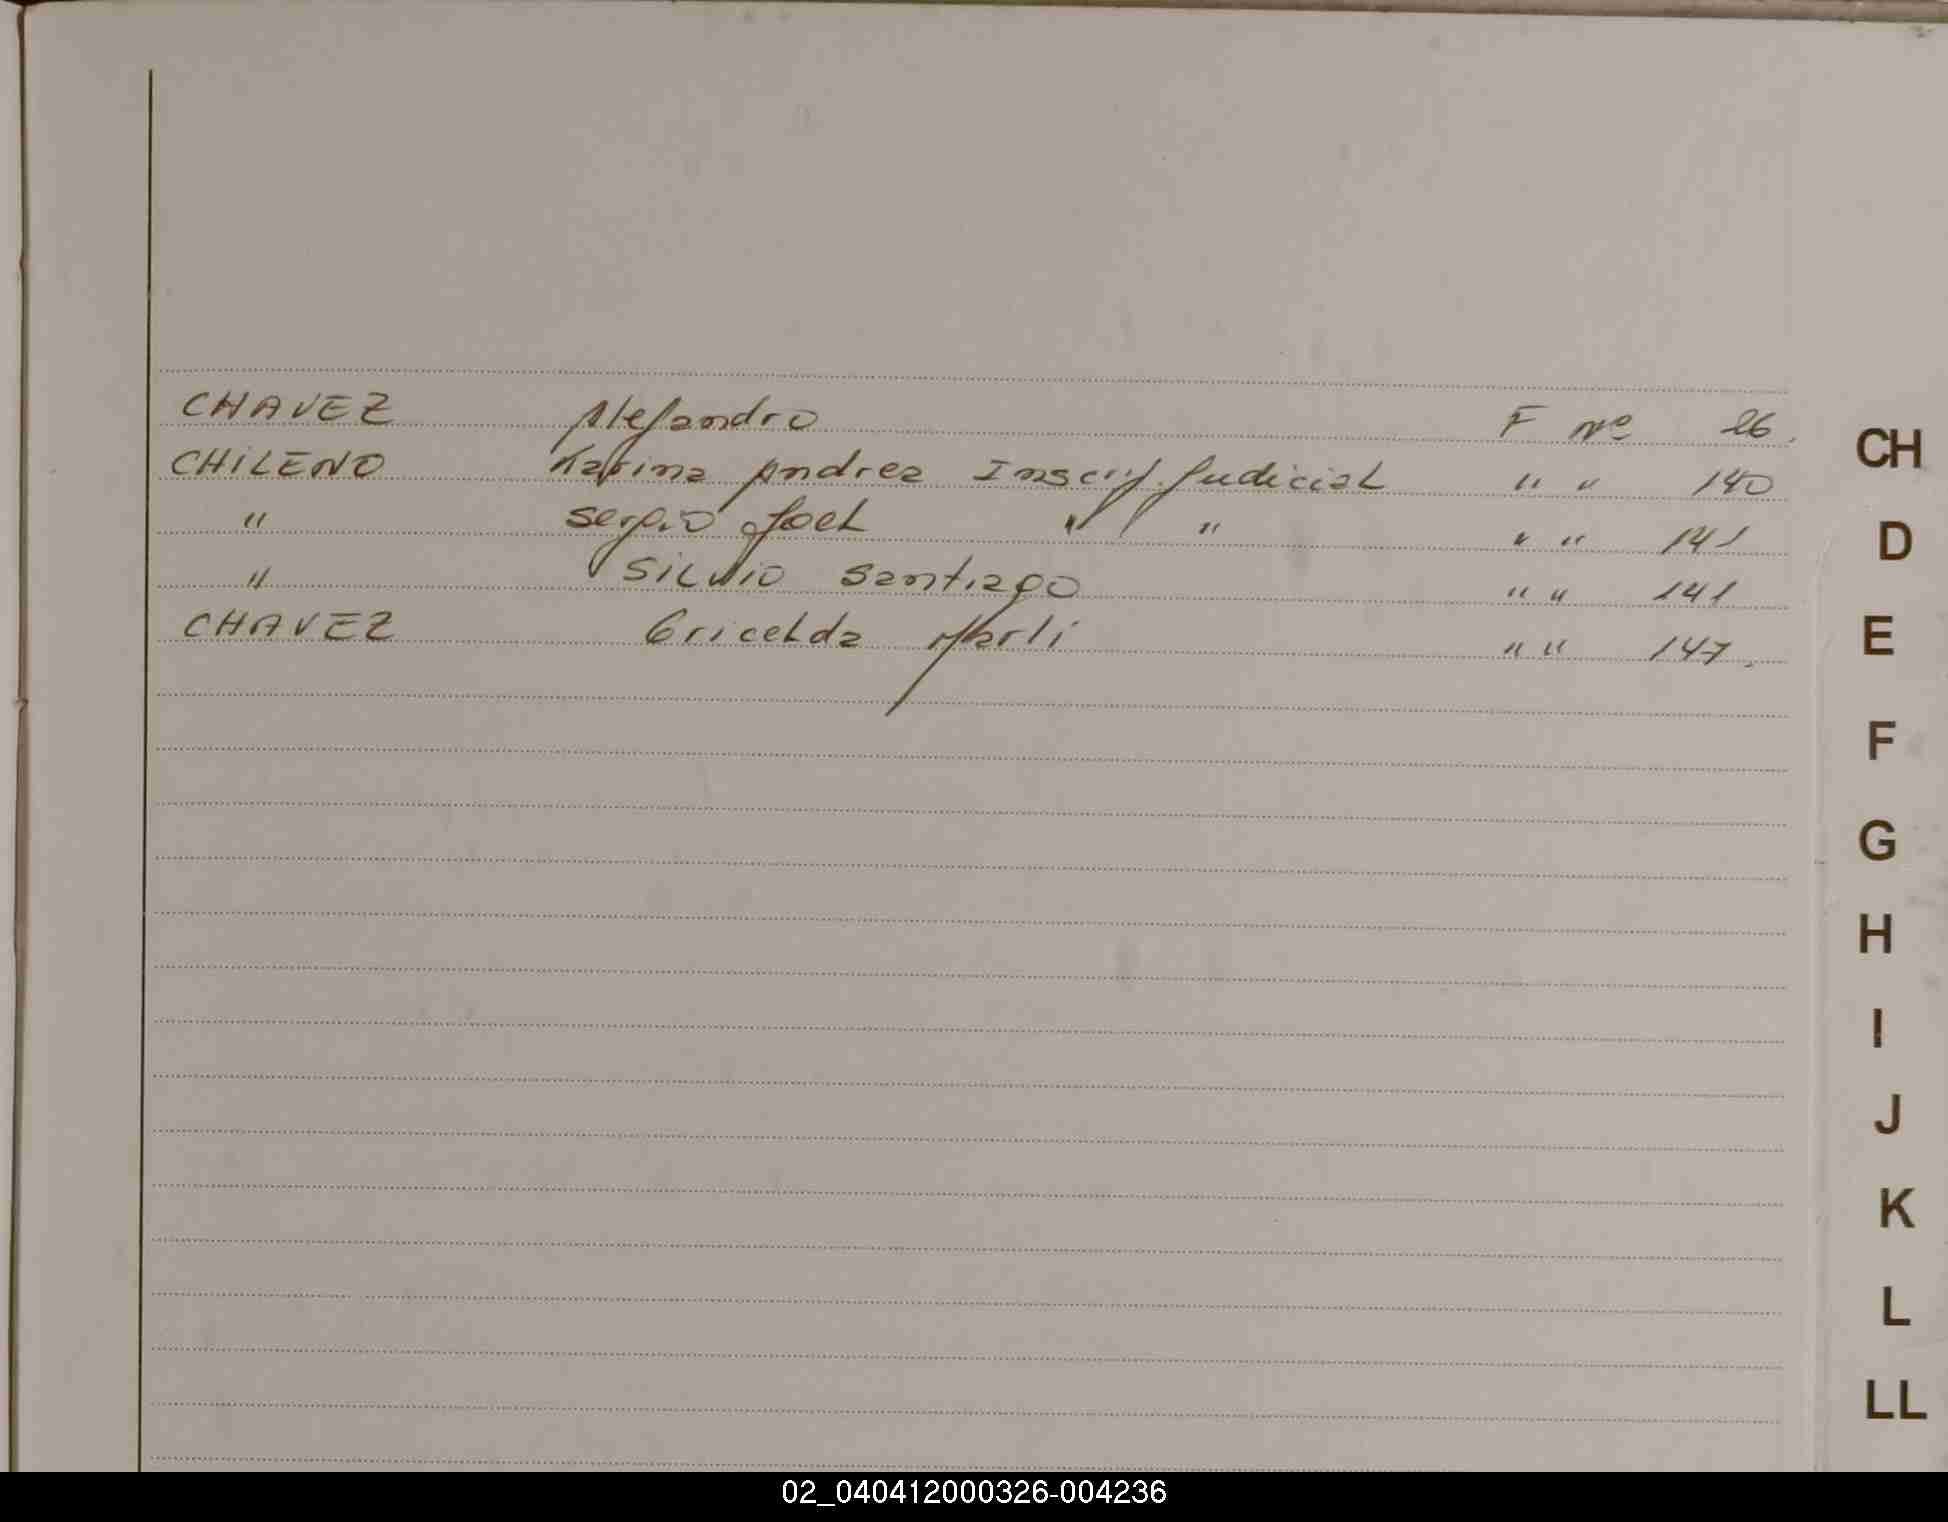 CHAVEZ Alejandro F Nº 26.
CHILENO Karina Andrea Inscrip. Judicial " " 140
" Sergio Joel " " " " 141
" Silvio Santiago " " 141
CHAVEZ Gricelda Marli " " 147.
CH
D
E
F
G
H
I
J
K
L
LL
02_040412000326-004236